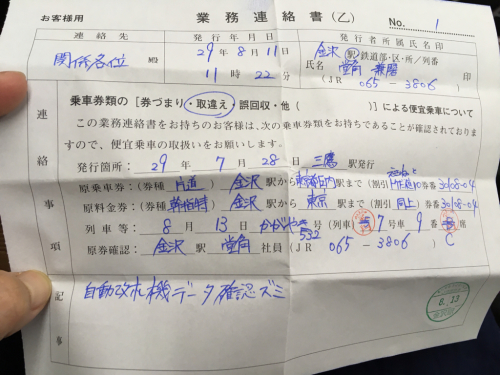 お客様用 業務連絡書(乙) No. 1
連絡先 発行年月日 発行者所属氏名印
関係各位 殿 29年8月11日 金沢 駅・鉄道部・区・所/列番
11時22分 氏名 堂角
(JR 065-3806) 印
乗車券類の[券づまり・取違え・誤回収・他( )]による便宜乗車について
この業務連絡書をお持ちのお客様は、次の乗車券類をお持ちであることが確認されておりま
すので、便宜乗車の取扱いをお願いします。
発行箇所:29年7月28日 三鷹駅発行
原乗車券:(券種 片道) 金沢 駅から 東京都区内 駅まで(割引 )券番 30108-04
原料金券:(券種 幹指特) 金沢 駅から 東京 駅まで(割引 同上)券番 30108-04
列車等:8月13日 かがやき 532号(列車) 7号車 9番 席 C
原券確認:金沢 駅 堂角 社員(JR 065-3806)
連絡事項
自動改札機データ確認ズミ
記事
8.13